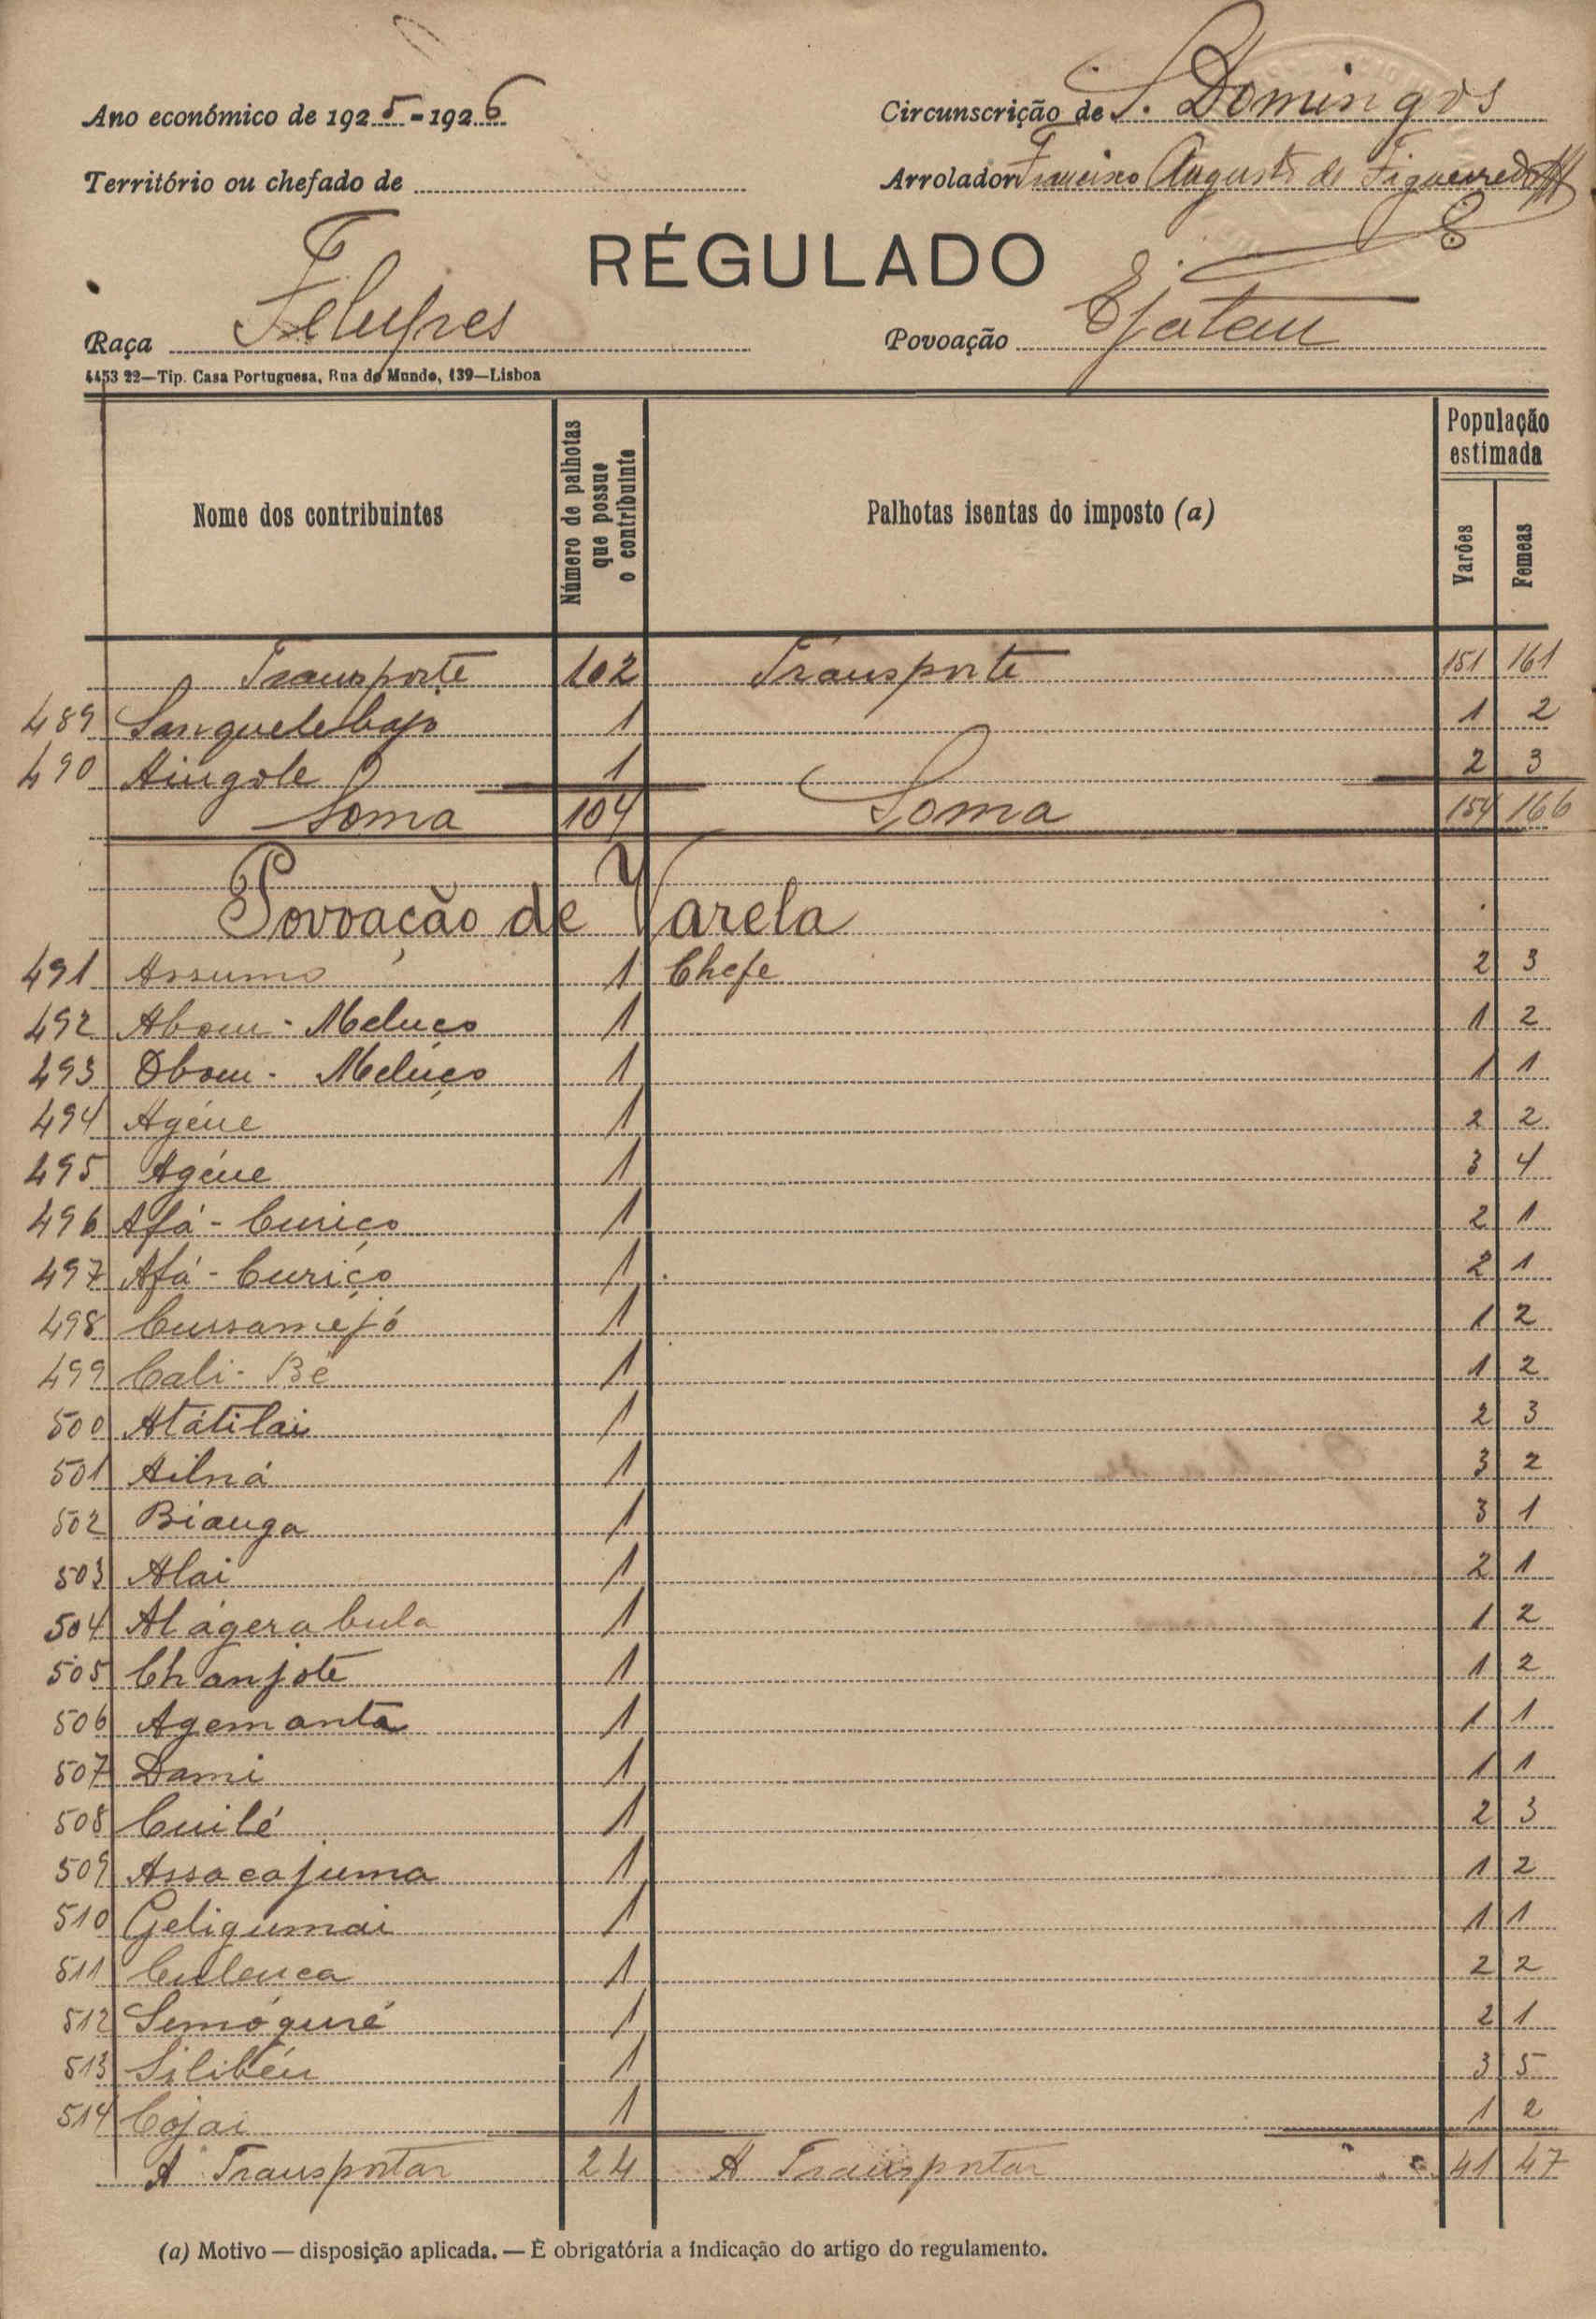 Ano económico de 1925-1926
Circunscrição de S. Domingos
Território ou chefado de
Arrolador Francisco Augusto de Figueiredo
RÉGULADO
Raça Felupes
Povoação Ejatem
4453 22—Tip. Casa Portuguesa, Rua do Mundo, 139—Lisboa
Nome dos contribuintes
Número de palhotas que possue o contribuinte
Palhotas isentas do imposto (a)
População estimada
Varões
Femeas
Transporte 102 Transporte 151 161
489 Sanguelebajo 1 1 2
490 Aingole 1 2 3
Soma 104 Soma 154 166
Povoação de Varela
491 Assumo 1 Chefe 2 3
492 Abom - Meluco 1 1 2
493 Obom - Melúço 1 1 1
494 Agéne 1 2 2
495 Agéne 1 3 4
496 Afá - Curiço 1 2 1
497 Afá - Curiço 1 2 1
498 Cussaméjó 1 1 2
499 Cali - Bé 1 1 2
500 Atátilai 1 2 3
501 Ailná 1 3 2
502 Bianga 1 3 1
503 Alai 1 2 1
504 Alágerabula 1 1 2
505 Chanjote 1 1 2
506 Agemanta 1 1 1
507 Dami 1 1 1
508 Cuilé 1 2 3
509 Assacajuma 1 1 2
510 Geligumai 1 1 1
511 Culenca 1 2 2
512 Semóguré 1 2 1
513 Silibéu 1 3 5
514 Cojai 1 1 2
A Transportar 24 A Transportar 41 47
(a) Motivo — disposição aplicada. — É obrigatória a indicação do artigo do regulamento.